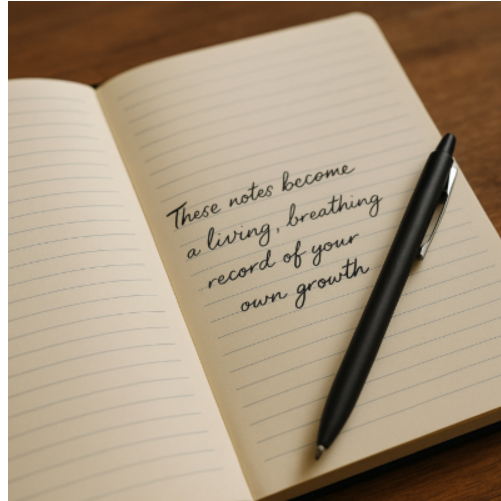 These notes become
a living, breathing
record of your
own growth